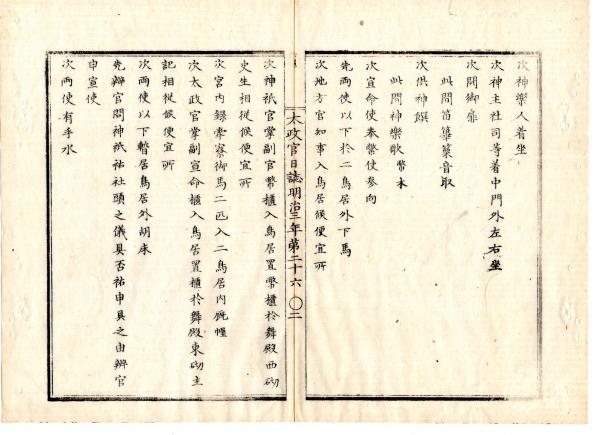 次神樂人着坐
次神主社司等着中門外左右坐
次開御扉
此間笛篳篥音取
次供神饌
此間神樂歌幣本
次宣命使奉幣使參向
先兩使以下於二鳥居外下馬
次地方官知事入鳥居候便宜所
太政官日誌明治三年第二十六 〇二
次神祇官掌副官幣櫃入鳥居置幣櫃於舞殿西砌
史生相從候便宜所
次宮内録牽寮御馬二匹入二鳥居内厩幄
次太政官掌副宣命櫃入鳥居置櫃於舞殿東砌主
記相從候便宜所
次兩使以下暫居鳥居外胡床
先辨官問神祇祐社頭之儀具否祐申具之由辨官
申宣使
次兩使有手水